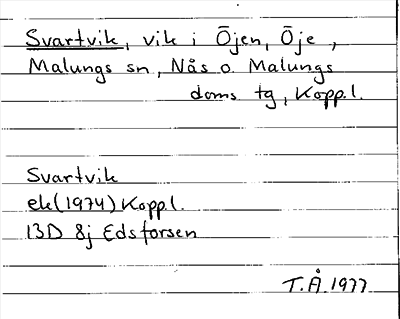 Svartvik, vik i Öjen, Öje,
Malungs sn, Nås o. Malungs
doms tg, Kopp.l.
Svartvik
ek(1974) Kopp.l.
13D 8j Edsforsen
T.Å 1977